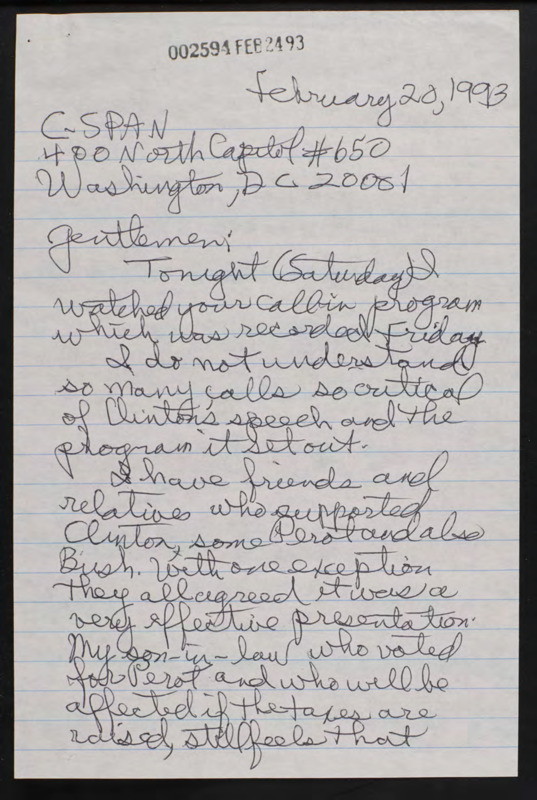 002594 FEB 24 93
February 20, 1993
C-SPAN
400 North Capitol #650
Washington, DC 20001
Gentlemen;
Tonight (Saturday) I
watched your call in program
which was recorded Friday
I do not understand
so many calls so critical
of Clinton's speech and the
program it set out.
I have friends and
relatives who supported
Clinton, some Perot and also
Bush. With one exception
they all agreed it was a
very effective presentation.
My son-in-law who voted
for Perot and who will be
affected if the taxes are
raised, still feels that